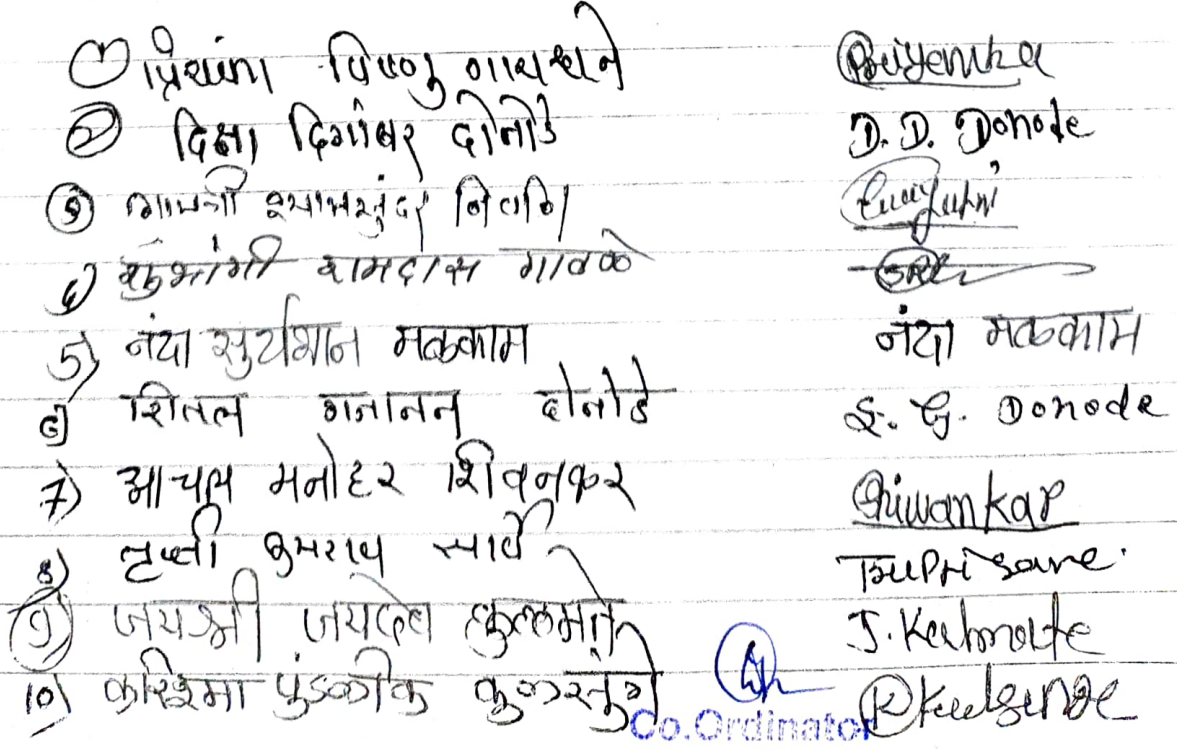 1) प्रियंका विष्णु गायधने Priyanka
2) दिक्षा दिगांबर दोनोडे D. D. Donode
3) श्यामसुंदर
4) शुभांगी रामदास गावळे
5) नंदा सुर्यभान मळकाम नंदा मळकाम
6) शितल गजानन दोनोडे S. G. Donode
7) आचल मनोहर शिवनकर Shiwankar
8) तृप्ती सार्वे Trupti Sarve.
9) जयश्री जयदेव कुलमते J. Kulmate
10) करिश्मा पुंडलीक कुळसुंगे
Co.Ordinator